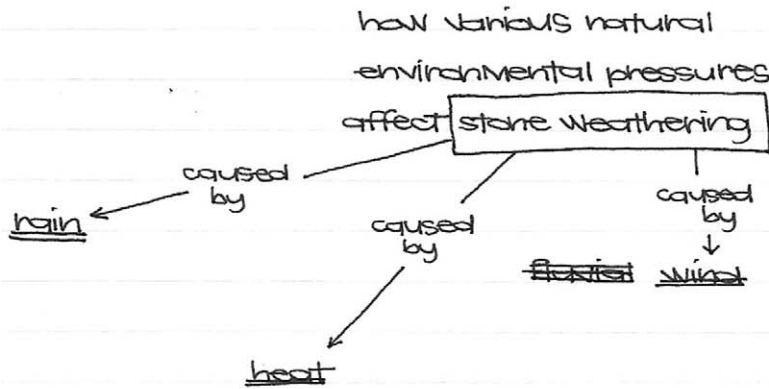 how various natural
environmental pressures
affect stone weathering
caused
by
rain
caused
by
heat
caused
by
fluvial wind